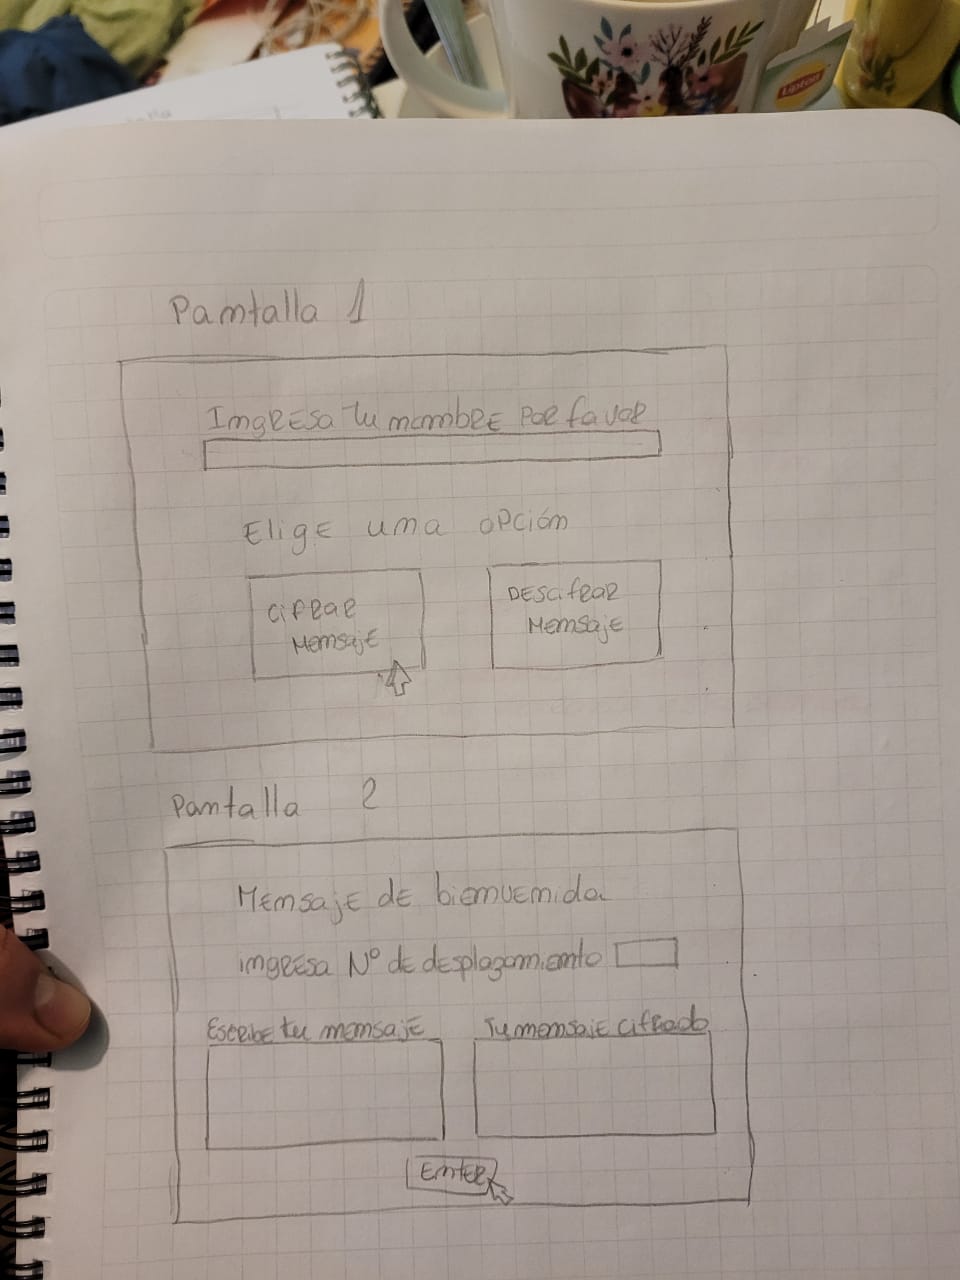 Lipton
Pantalla 1
Ingresa tu nombre por favor
Elige una opción
Cifrar
Mensaje
Descifrar
Mensaje
Pantalla 2
Mensaje de bienvenida
ingresa Nº de desplazamiento
Escribe tu mensaje
Tu mensaje cifrado
Enter